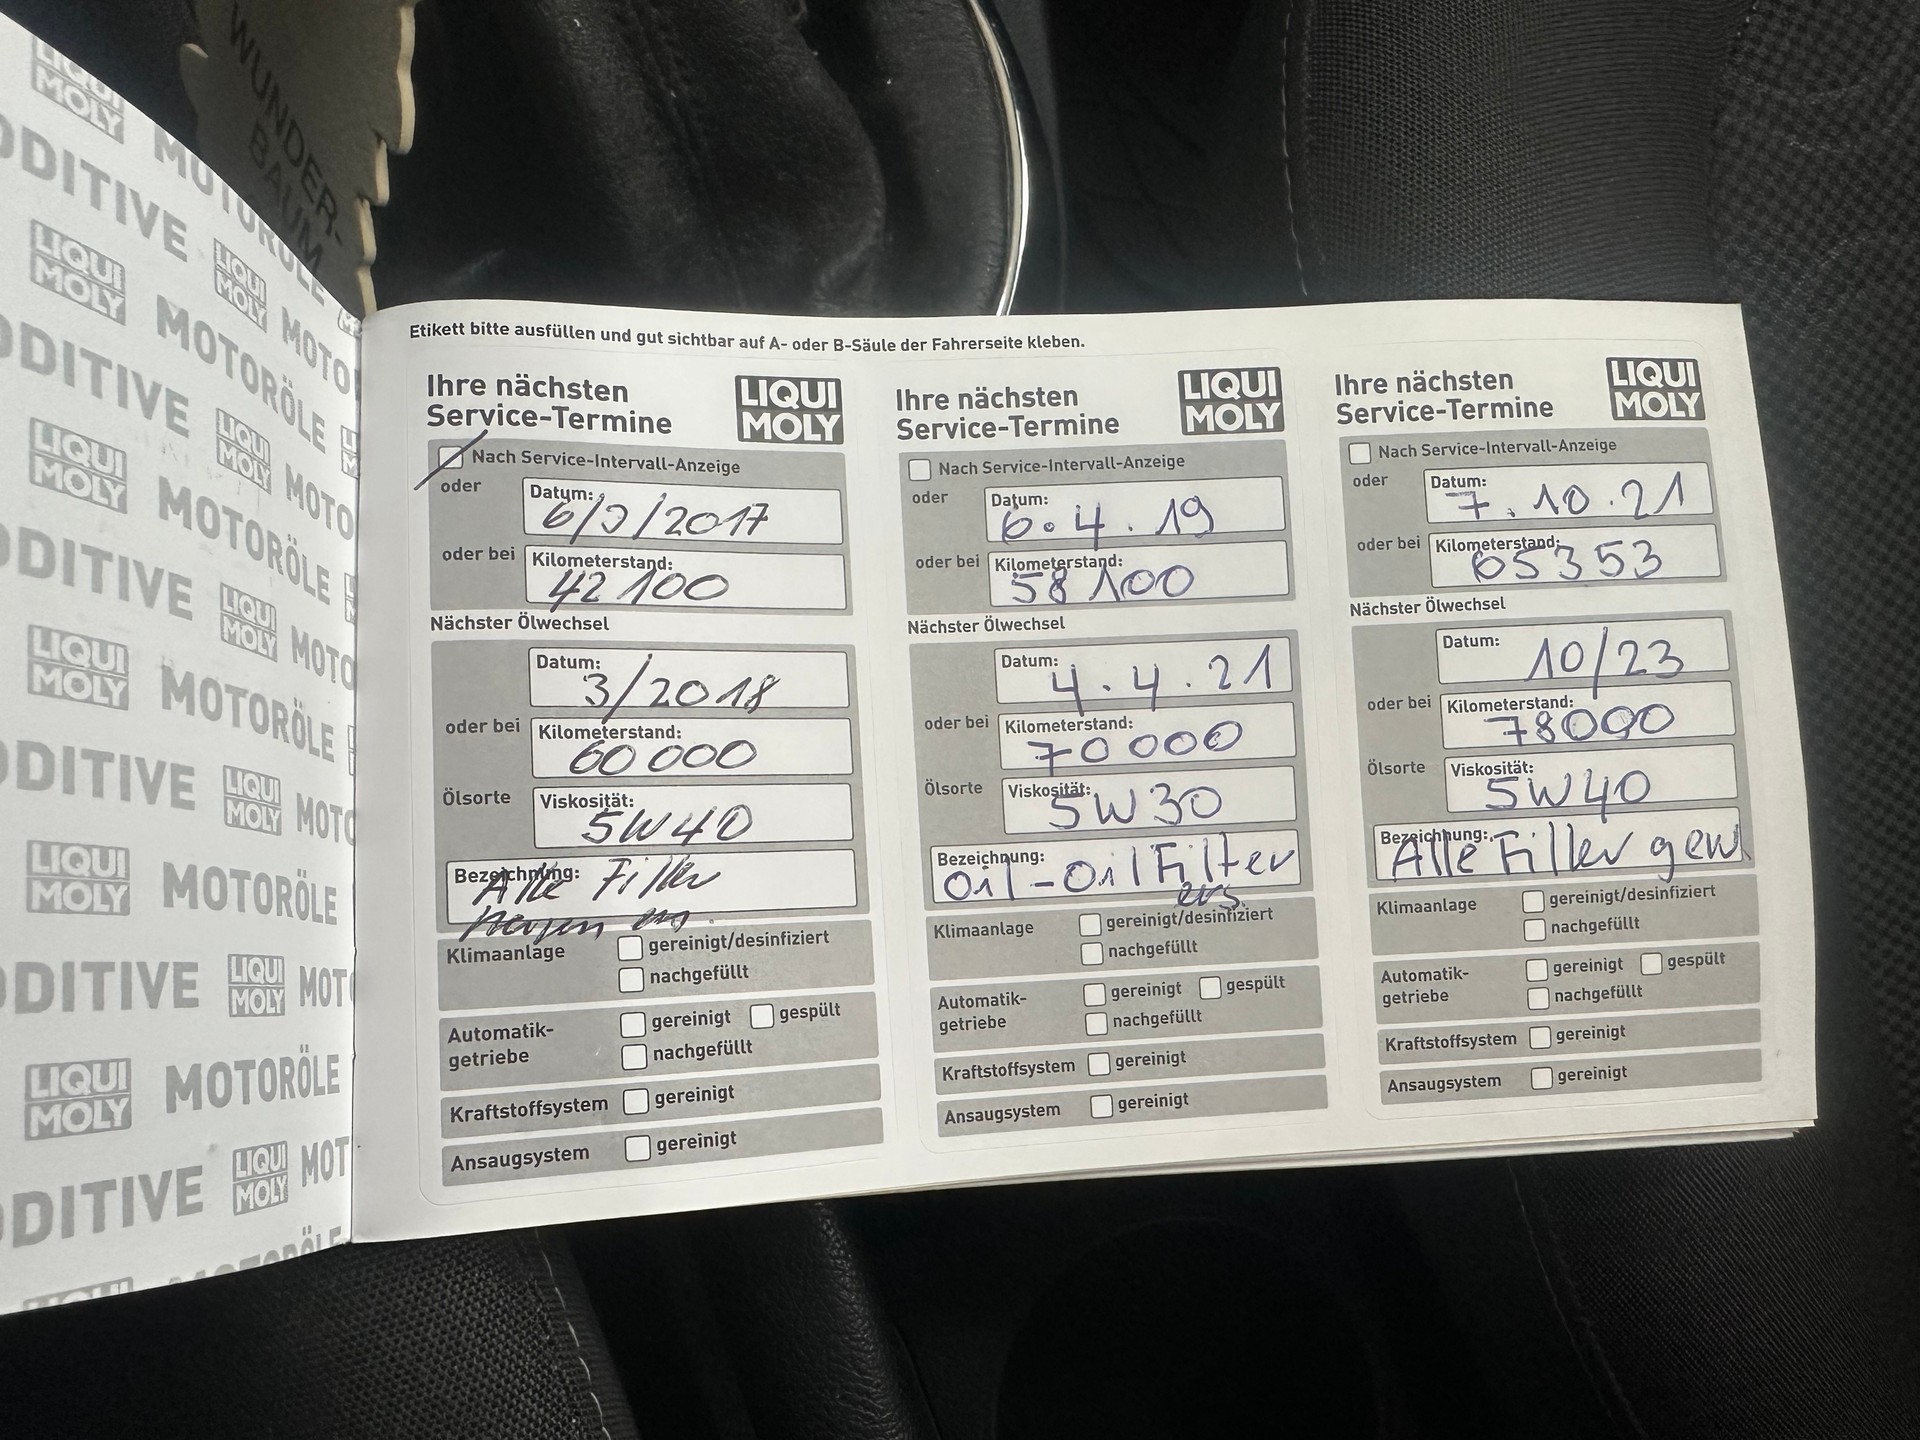 WUNDER-
BAUM
LIQUI
MOLY
MOTORÖLE
DDITIVE
LIQUI
MOLY
MOTORÖLE
LIQUI
MOLY
MOTORÖLE
DDITIVE
LIQUI
MOLY
MOTO
LIQUI
MOLY
MOTORÖLE
DDITIVE
LIQUI
MOLY
MOTO
LIQUI
MOLY
MOTORÖLE
DDITIVE
LIQUI
MOLY
MOTO
LIQUI
MOLY
MOTORÖLE
DDITIVE
LIQUI
MOLY
MOT
LIQUI
MOLY
MOTORÖLE
DDITIVE
LIQUI
MOLY
MOT
Etikett bitte ausfüllen und gut sichtbar auf A- oder B-Säule der Fahrerseite kleben.
Ihre nächsten
Service-Termine
LIQUI
MOLY
Nach Service-Intervall-Anzeige
oder
Datum:
2017
oder bei
Kilometerstand:
42 100
Nächster Ölwechsel
Datum:
3/2018
oder bei
Kilometerstand:
60 000
Ölsorte
Viskosität:
5W40
Bezeichnung:
Alle Filter
Klimaanlage
gereinigt/desinfiziert
nachgefüllt
Automatik-
getriebe
gereinigt
gespült
nachgefüllt
Kraftstoffsystem
gereinigt
Ansaugsystem
gereinigt
Ihre nächsten
Service-Termine
LIQUI
MOLY
Nach Service-Intervall-Anzeige
oder
Datum:
6.4.19
oder bei
Kilometerstand:
58 100
Nächster Ölwechsel
Datum:
4.4.21
oder bei
Kilometerstand:
70 000
Ölsorte
Viskosität:
5W30
Bezeichnung:
Oil-Oil Filter
ers.
Klimaanlage
gereinigt/desinfiziert
nachgefüllt
Automatik-
getriebe
gereinigt
gespült
nachgefüllt
Kraftstoffsystem
gereinigt
Ansaugsystem
gereinigt
Ihre nächsten
Service-Termine
LIQUI
MOLY
Nach Service-Intervall-Anzeige
oder
Datum:
7.10.21
oder bei
Kilometerstand:
65353
Nächster Ölwechsel
Datum:
10/23
oder bei
Kilometerstand:
78000
Ölsorte
Viskosität:
5W40
Bezeichnung:
Alle Filter gew
Klimaanlage
gereinigt/desinfiziert
nachgefüllt
Automatik-
getriebe
gereinigt
gespült
nachgefüllt
Kraftstoffsystem
gereinigt
Ansaugsystem
gereinigt